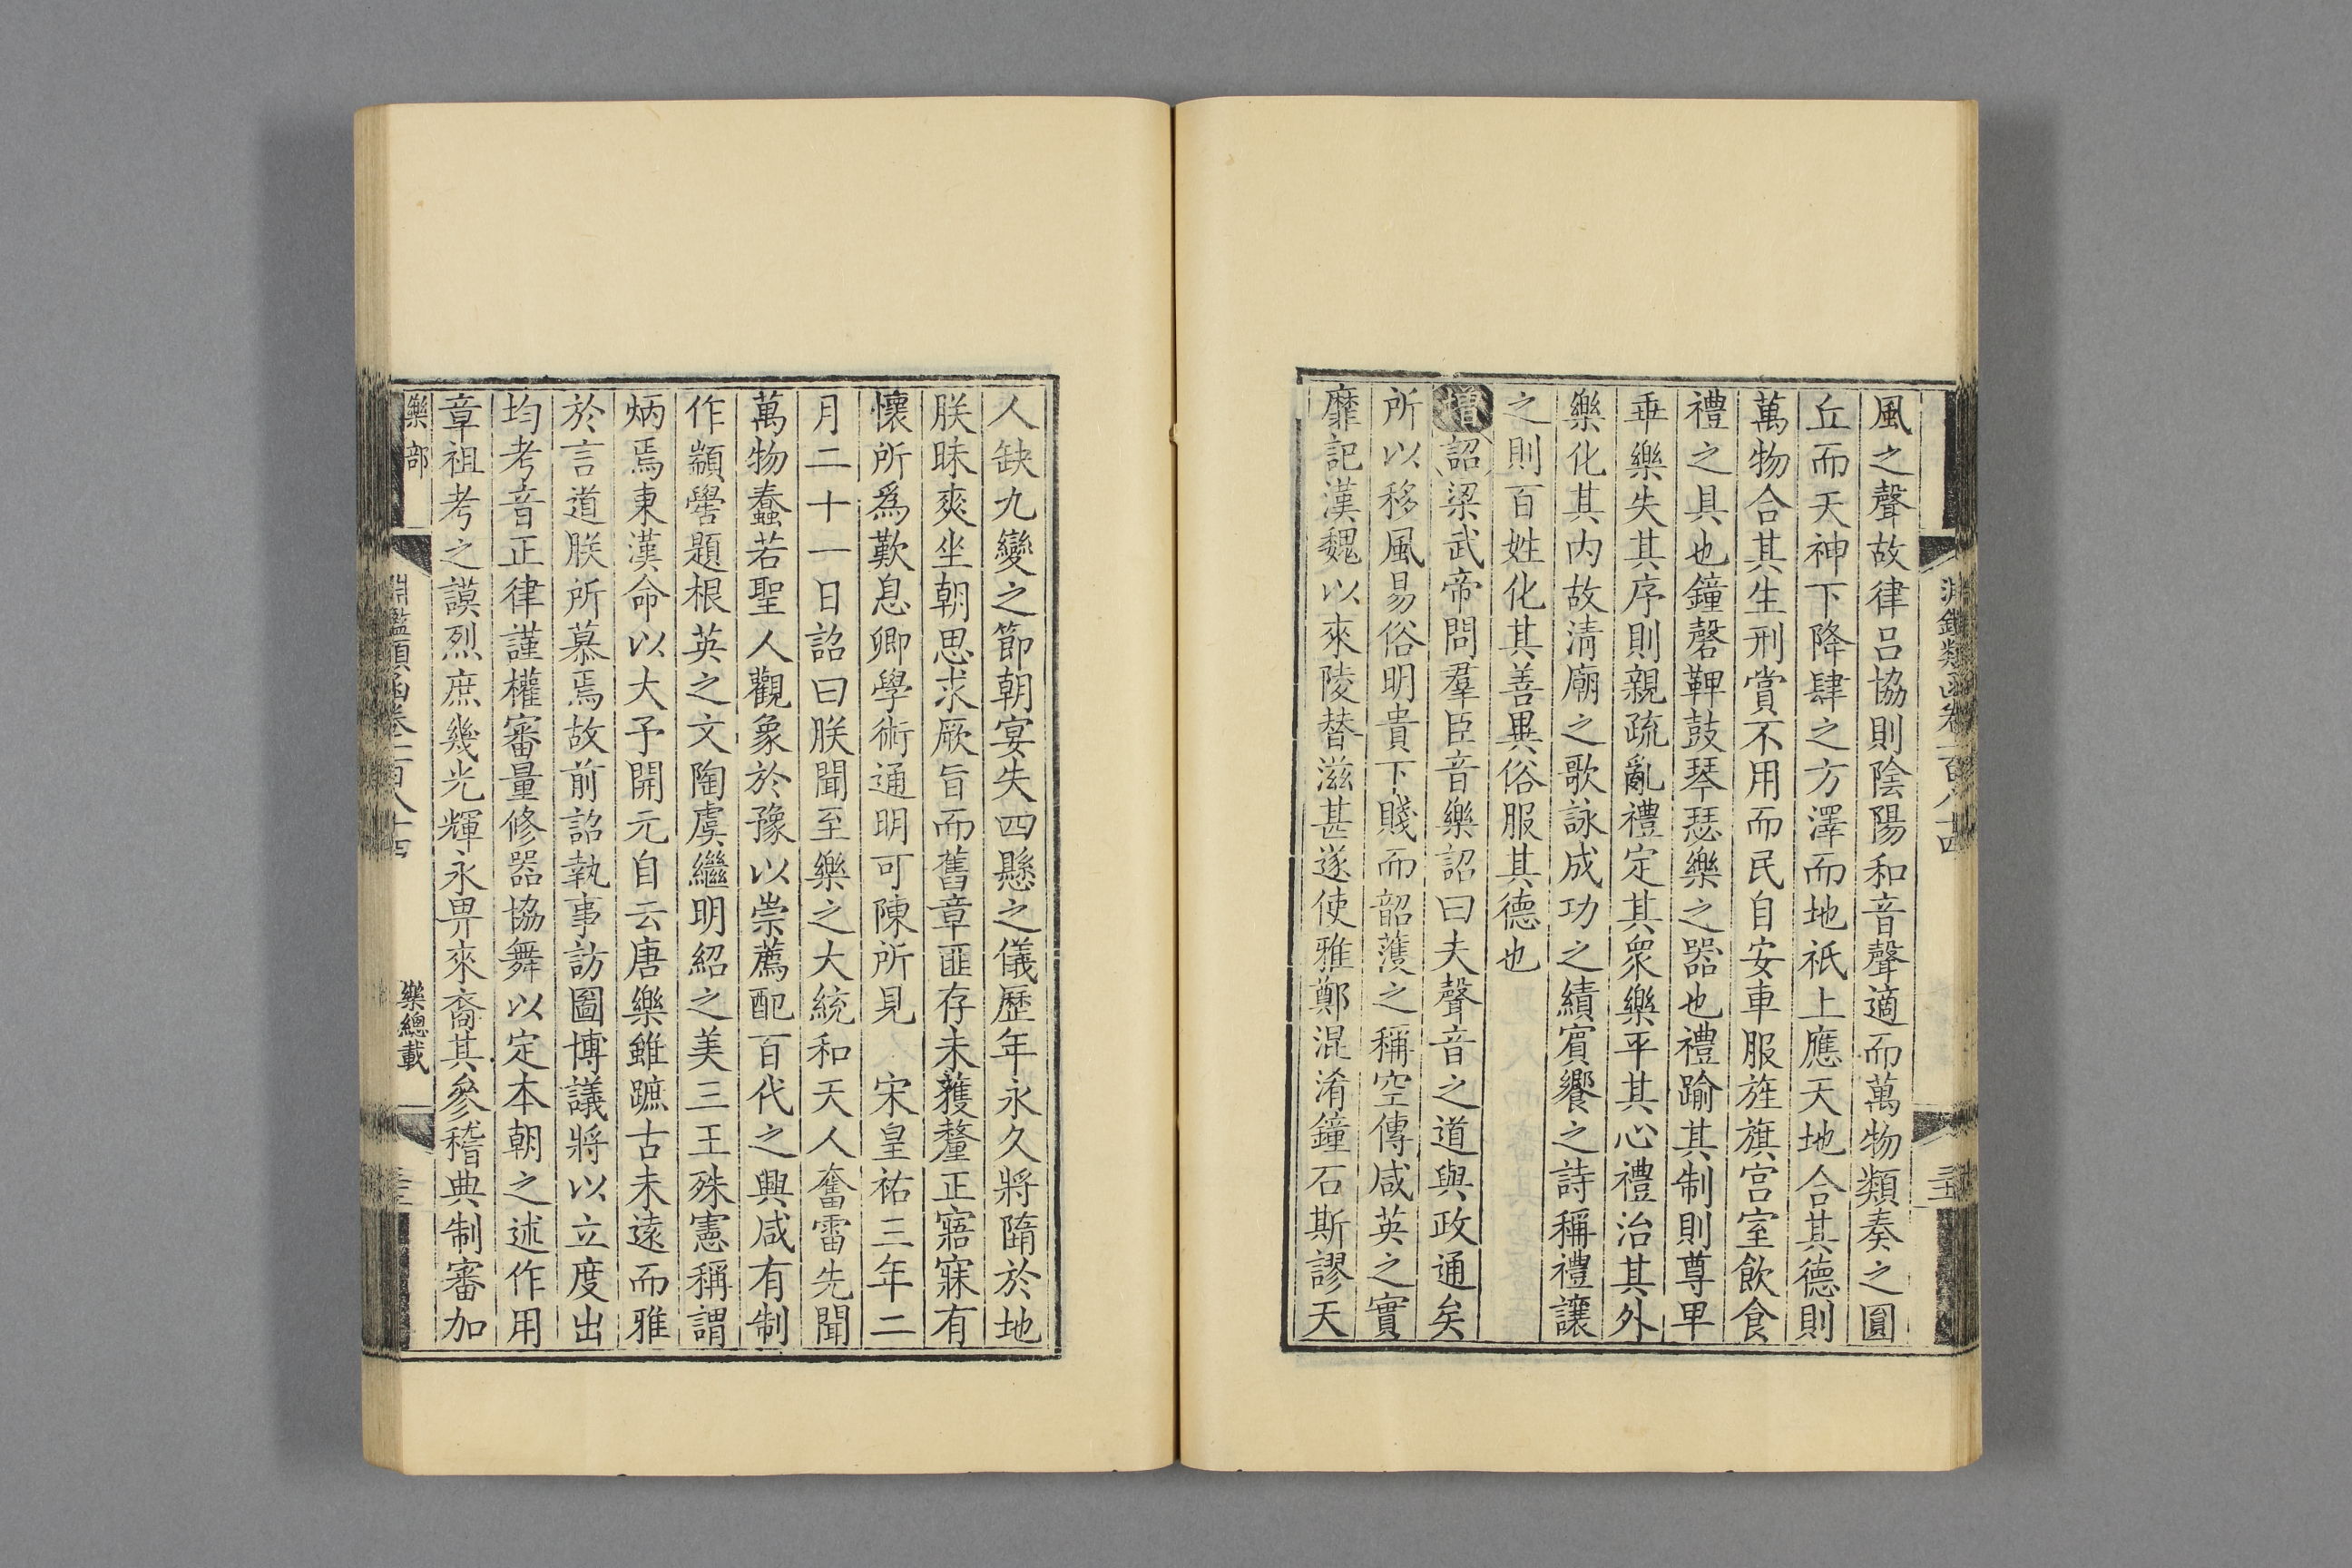 風之聲故律呂協則陰陽和音聲適而萬物類奏之圓
丘而天神下降肆之方澤而地祇上應天地合其德則
萬物合其生刑賞不用而民自安車服旌旗宮室飲食
禮之具也鐘磬鞞鼓琴瑟樂之器也禮踰其制則尊卑
乖樂失其序則親疏亂禮定其衆樂平其心禮治其外
樂化其內故清廟之歌詠成功之績賓饗之詩稱禮讓
之則百姓化其善異俗服其德也
增詔梁武帝問羣臣音樂詔曰夫聲音之道與政通矣
所以移風易俗明貴下賤而韶濩之稱空傳咸英之實
靡記漢魏以來陵替滋甚遂使雅鄭混淆鐘石斯謬天
人缺九變之節朝宴失四懸之儀歷年永久將隋於地
朕昧爽坐朝思求厥旨而舊章匪存未獲釐正寤寐有
懷所爲歎息卿學術通明可陳所見 宋皇祐三年二
月二十一日詔曰朕聞至樂之大統和天人奮雷先聞
萬物蠢若聖人觀象於豫以崇薦配百代之興咸有制
作顓嚳題根英之文陶虞繼明紹之美三王殊憲稱謂
炳焉東漢命以大予開元自云唐樂雖蹠古未遠而雅
於言道朕所慕焉故前詔執事訪圖博議將以立度出
均考音正律謹權審量修器協舞以定本朝之述作用
章祖考之謨烈庶幾光輝永畀來裔其參稽典制審加
樂部 淵鑑類函卷一百八十四 樂總載